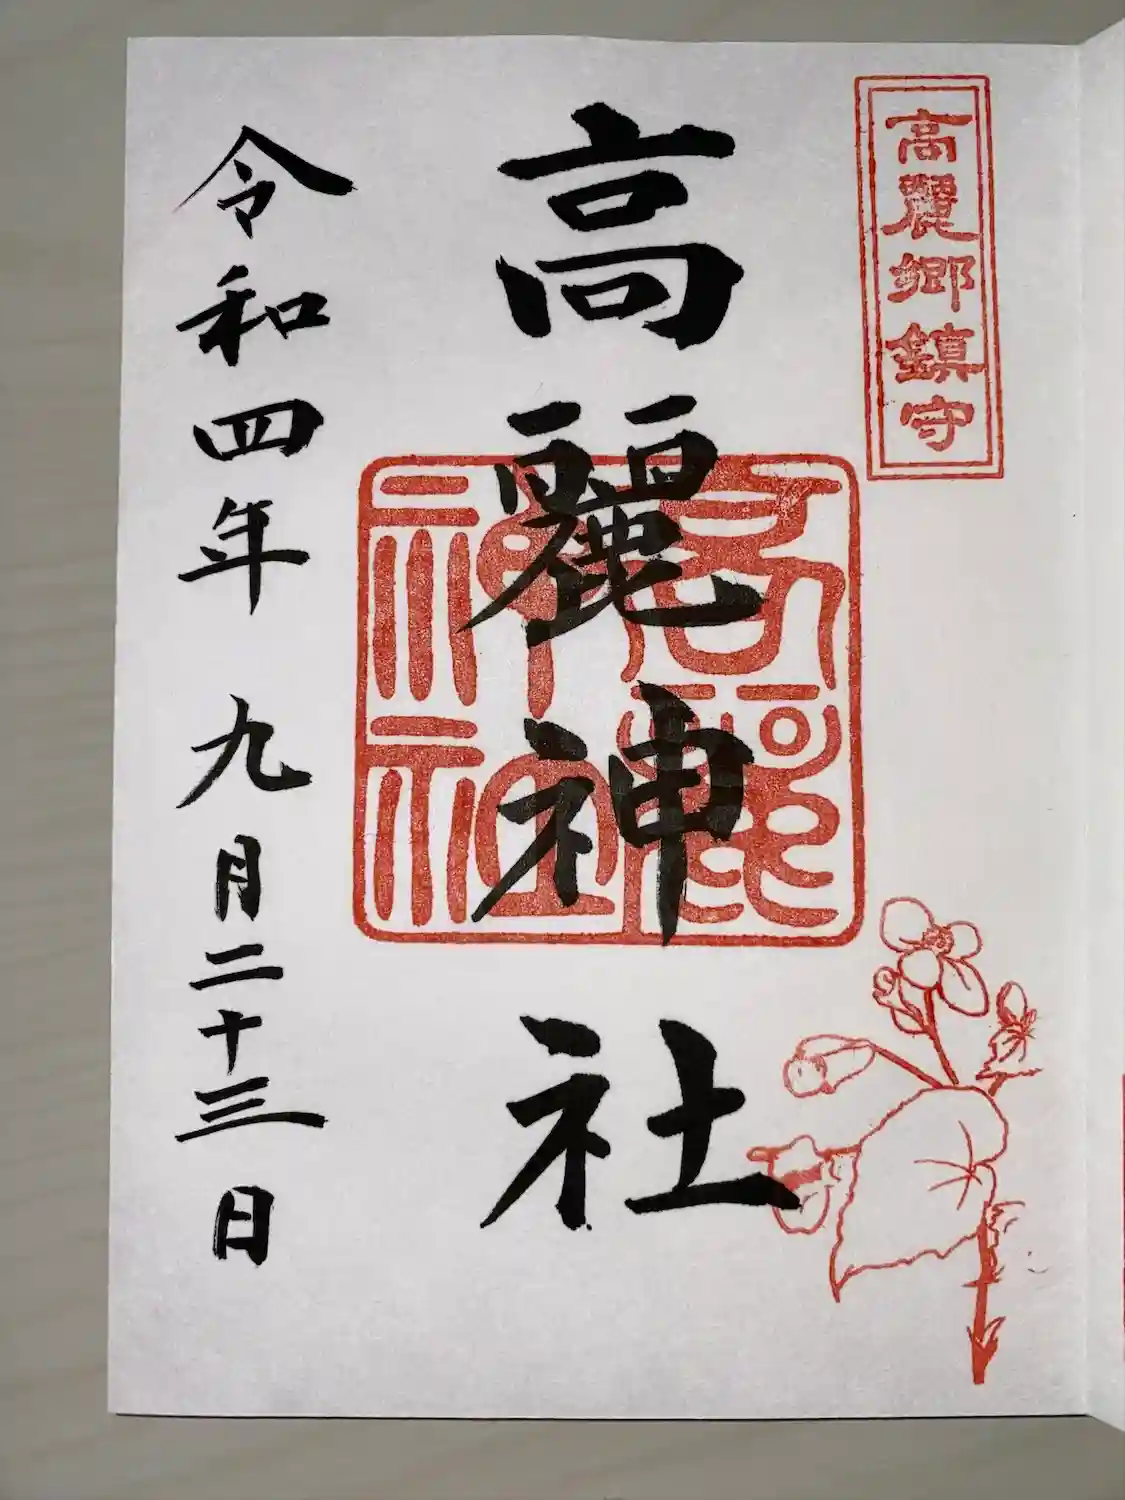 高麗郷鎮守
高麗神社
高麗
神社
令和四年 九月二十三日